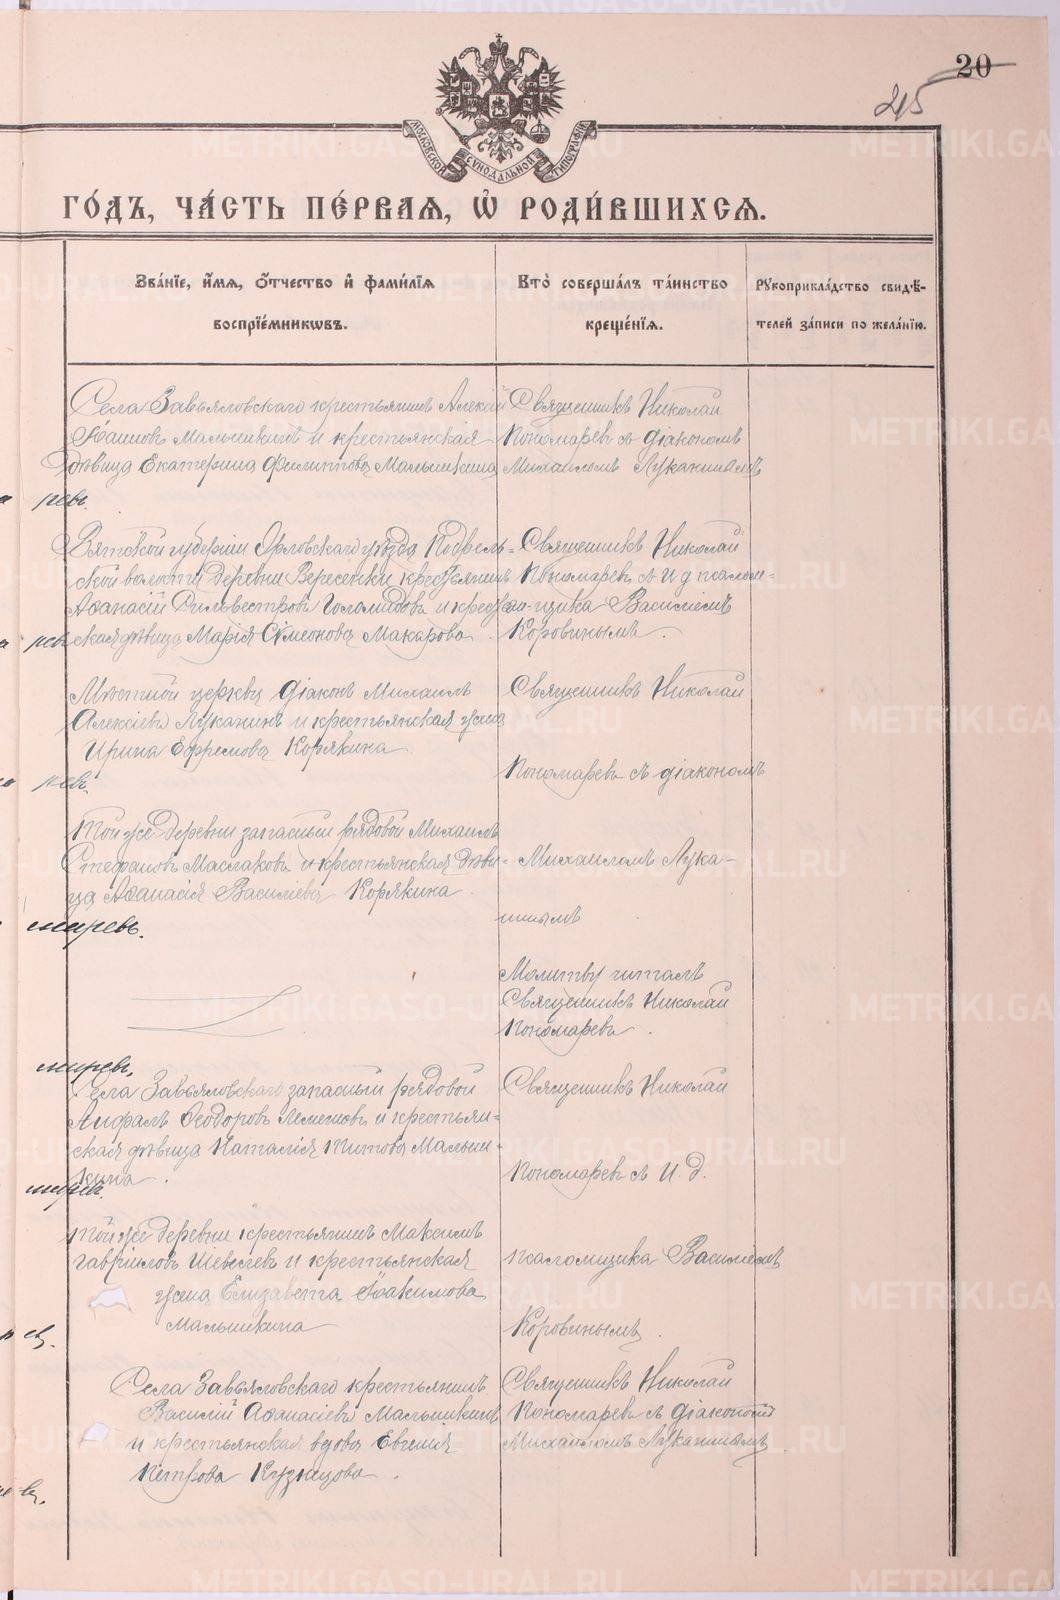 20
45
МОСКОВСКОЙ СѴНОДАЛЬНОЙ ТИПОГРАФІИ
ГО́ДЪ, ЧА́СТЬ ПЕ́РВАѦ, Ѡ҆ РОДИ́ВШИХСѦ.
Зва́нїе, и҆́мѧ, ѻ҆́тчество и҆ фами́лїѧ
воспрїе́мникѡвъ.
Кто̀ соверша́лъ та́инство
креще́нїѧ.
Рꙋкоприкла́дство свидѣ́-
телей за́писи по жела́нїю.
Села Завьяловскаго крестьянинъ Алексій
Іоанновъ Малышкинъ и крестьянская
дѣвица Екатерина Филиппова Малышкина
Священникъ Николай
Пономаревъ съ діакономъ
Михаиломъ Луканинымъ
ревъ.
Вятской губерніи Орловскаго уѣзда
ской волости деревни Вересенки крестьянинъ
Аѳанасій Сильвестровъ Голомидовъ и крестьян-
ская дѣвица Марія Сѵмеонова Макарова
Священникъ Николай
Пономаревъ съ И д псалом-
щика Василіемъ
Коровинымъ.
Мѣстной церкви діаконъ Михаилъ
Алексіевъ Луканинъ и крестьянская жена
Ирина Ефремова Корякина
Священникъ Николай
Пономаревъ съ діакономъ
ревъ.
Той же деревни запасный рядовой Михаилъ
Стефановъ Маслаковъ и крестьянская дѣви-
ца Аѳанасія Василіева Корякина.
Михаиломъ Лука-
нинымъ
Молитву читалъ
Священникъ Николай
Пономаревъ.
Села Завьяловскаго запасный рядовой
Анфалъ Ѳеодоровъ Лемеховъ и крестьян-
ская дѣвица Наталія Титова Малыш-
кина.
Священникъ Николай
Пономаревъ съ И. д.
Той же деревни крестьянинъ Максимъ
Гавріиловъ Шевелевъ и крестьянская
жена Елизавета Іоакимова
Малышкина
псаломщика Василіемъ
Коровинымъ.
Села Завьяловскаго крестьянинъ
Василій Аѳанасіевъ Малышкинъ
и крестьянская вдова Евгенія
Петрова Кузнецова.
Священникъ Николай
Пономаревъ съ діакономъ
Михаиломъ Луканинымъ.
METRIKI.GASO-URAL.RU